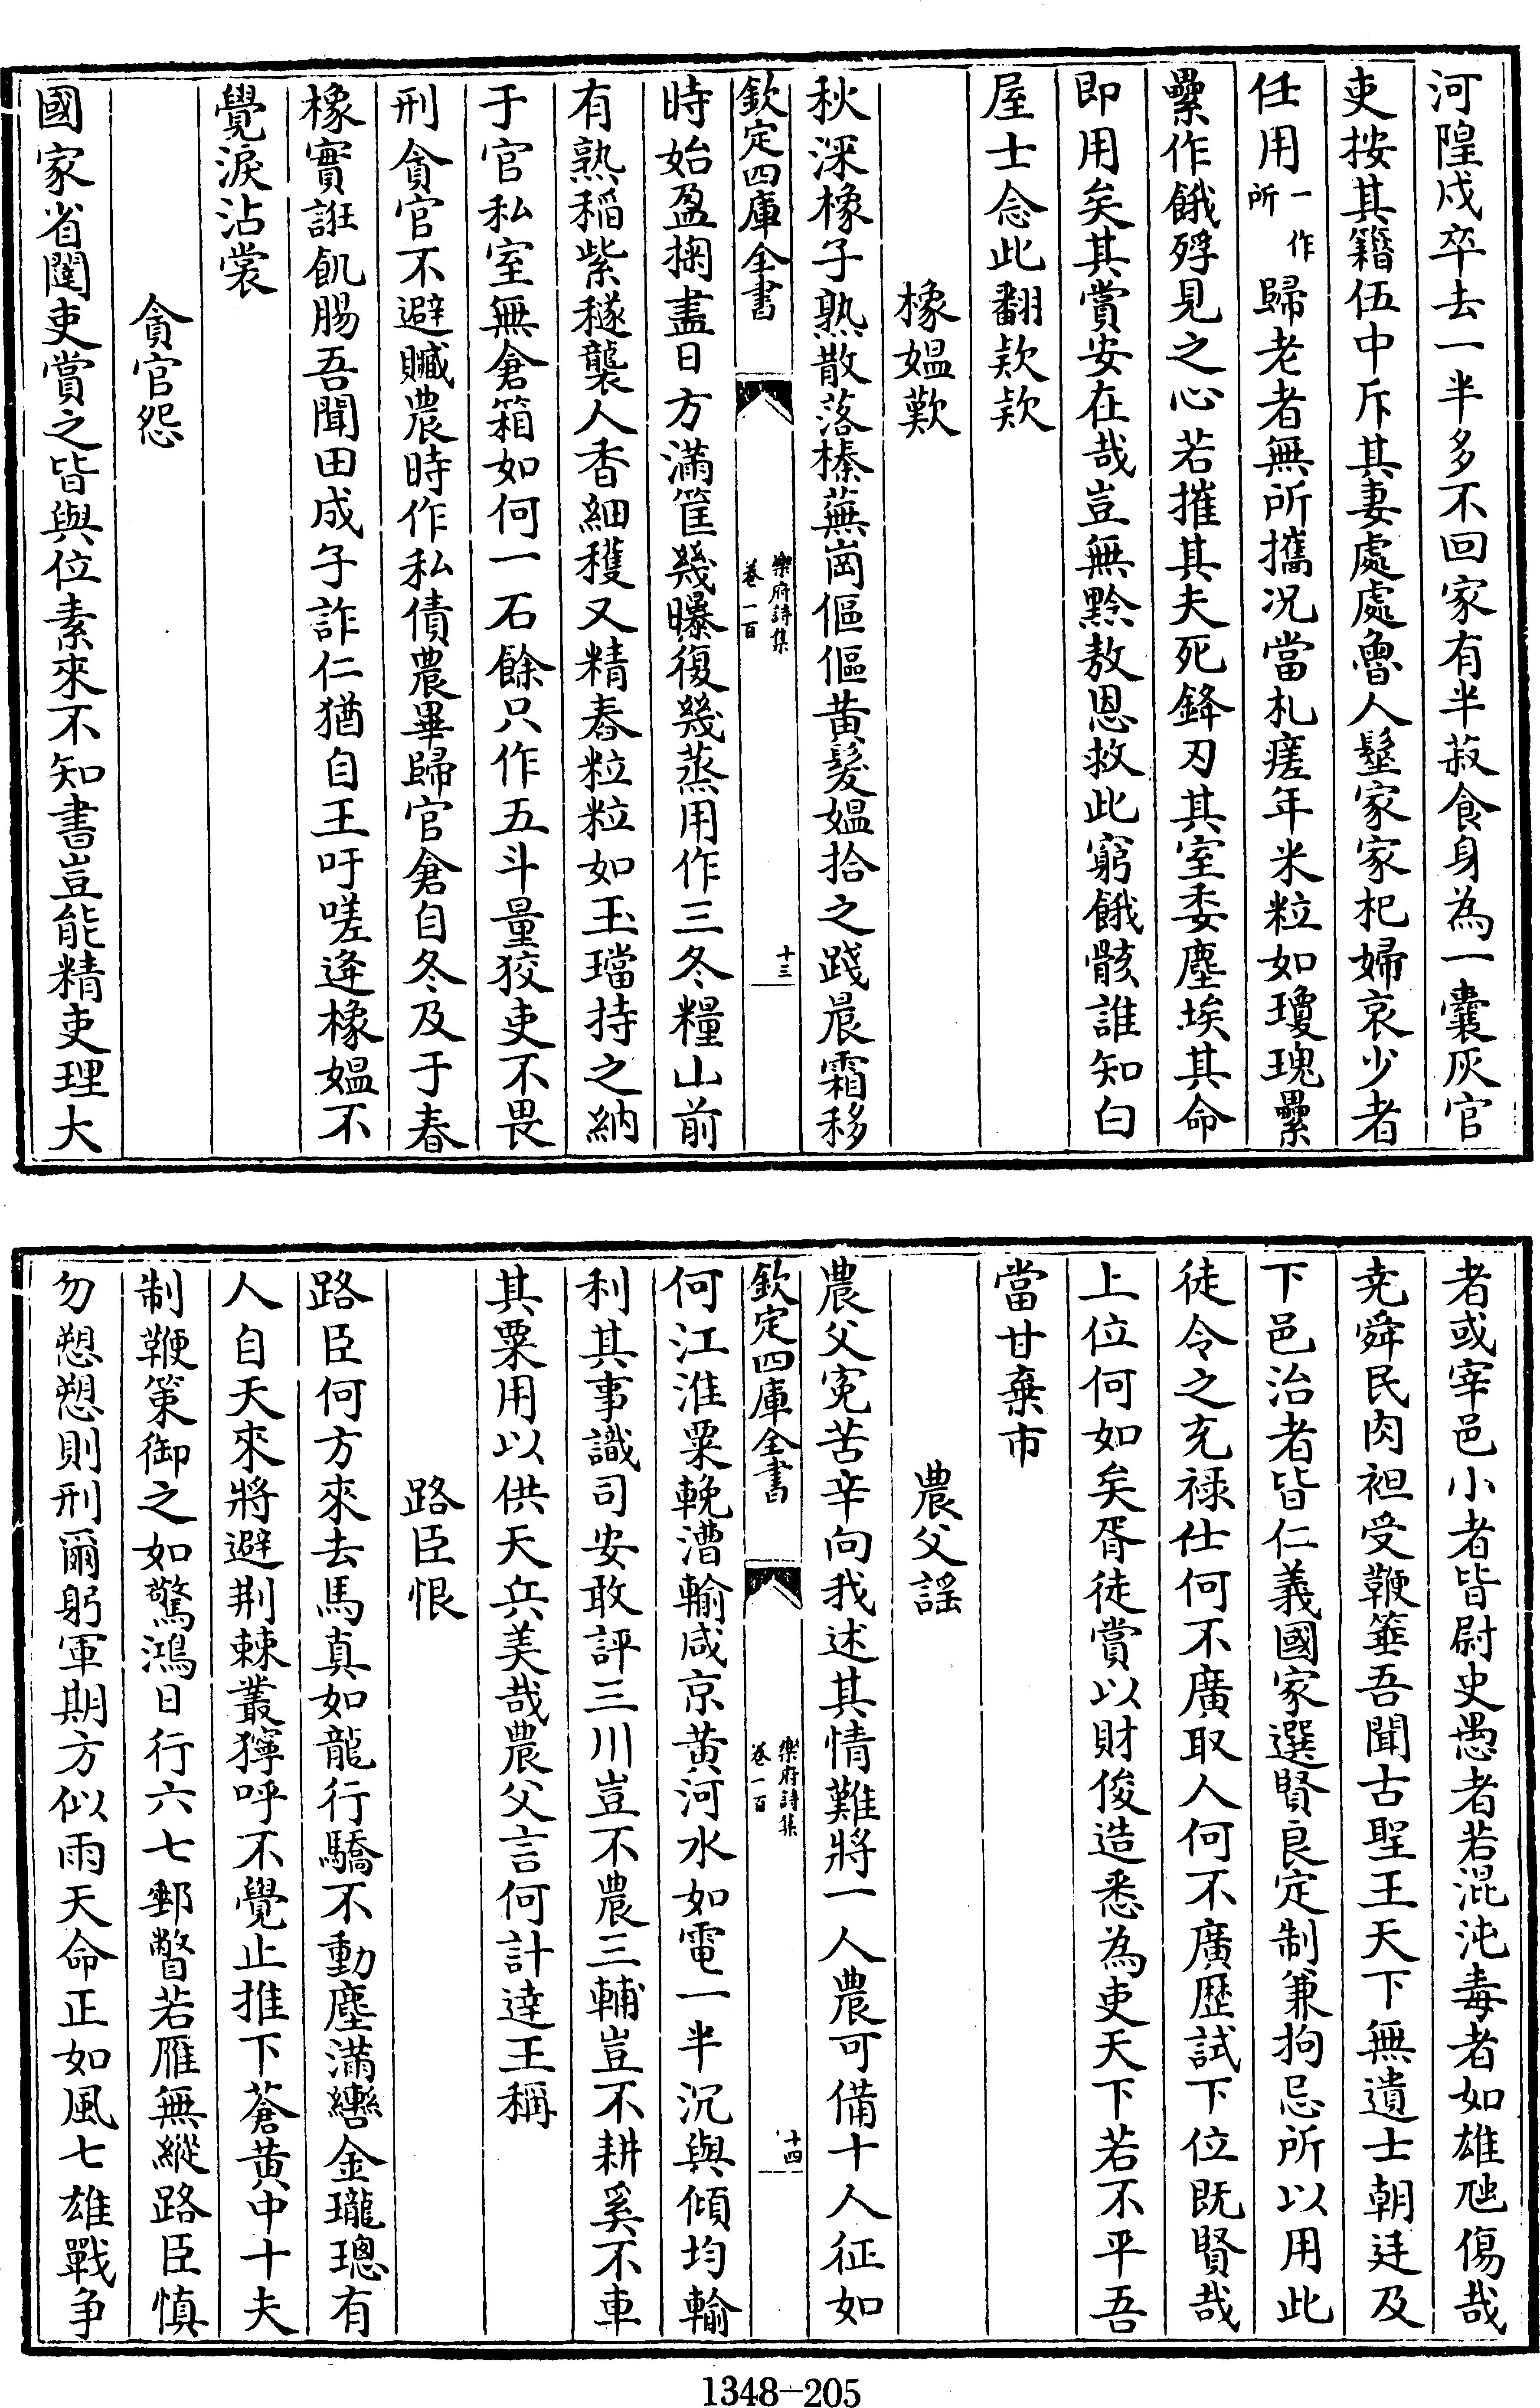 河隍戍卒去一半多不回家有半菽食身為一囊灰官
吏按其籍伍中斥其妻處處魯人髽家家杞婦哀少者
任用一作所歸老者無所攜况當札瘥年米粒如瓊瑰纍
纍作餓殍見之心若摧其夫死鋒刃其室委塵埃其命
即用矣其賞安在哉豈無黔敖恩救此窮餓骸誰知白
屋士念此翻欵欵
橡媪歎
秋深橡子熟散落榛蕪崗傴傴黄髮媪拾之踐晨霜移
欽定四庫全書
樂府詩集
卷一百
十三
時始盈掬盡日方滿筐幾曝復幾蒸用作三冬糧山前
有熟稻紫穟襲人香細穫又精舂粒粒如玉璫持之納
于官私室無倉箱如何一石餘只作五斗量狡吏不畏
刑貪官不避贓農時作私債農畢歸官倉自冬及于春
橡實誑飢腸吾聞田成子詐仁猶自王吁嗟逄橡媪不
覺淚沾裳
貪官怨
國家省闥吏賞之皆與位素來不知書豈能精吏理大
者或宰邑小者皆尉史愚者若混沌毒者如雄虺傷哉
尭舜民肉袒受鞭箠吾聞古聖王天下無遺士朝廷及
下邑治者皆仁義國家選賢良定制兼拘忌所以用此
徒令之充禄仕何不廣取人何不廣歴試下位既賢哉
上位何如矣胥徒賞以財俊造悉為吏天下若不平吾
當甘棄市
農父謡
農父寃苦辛向我述其情難將一人農可備十人征如
欽定四庫全書
樂府詩集
卷一百
十四
何江淮粟輓漕輸咸京黄河水如電一半沉與傾均輸
利其事識司安敢評三川豈不農三輔豈不耕奚不車
其粟用以供天兵美哉農父言何計達王稱
路臣恨
路臣何方來去馬真如龍行驕不動塵滿轡金瓏璁有
人自天來將避荆棘叢獰呼不覺止推下蒼黄中十夫
制鞭策御之如驚鴻日行六七郵瞥若雁無縱路臣慎
勿愬愬則刑爾躬軍期方似雨天命正如風七雄戰争
1348-205